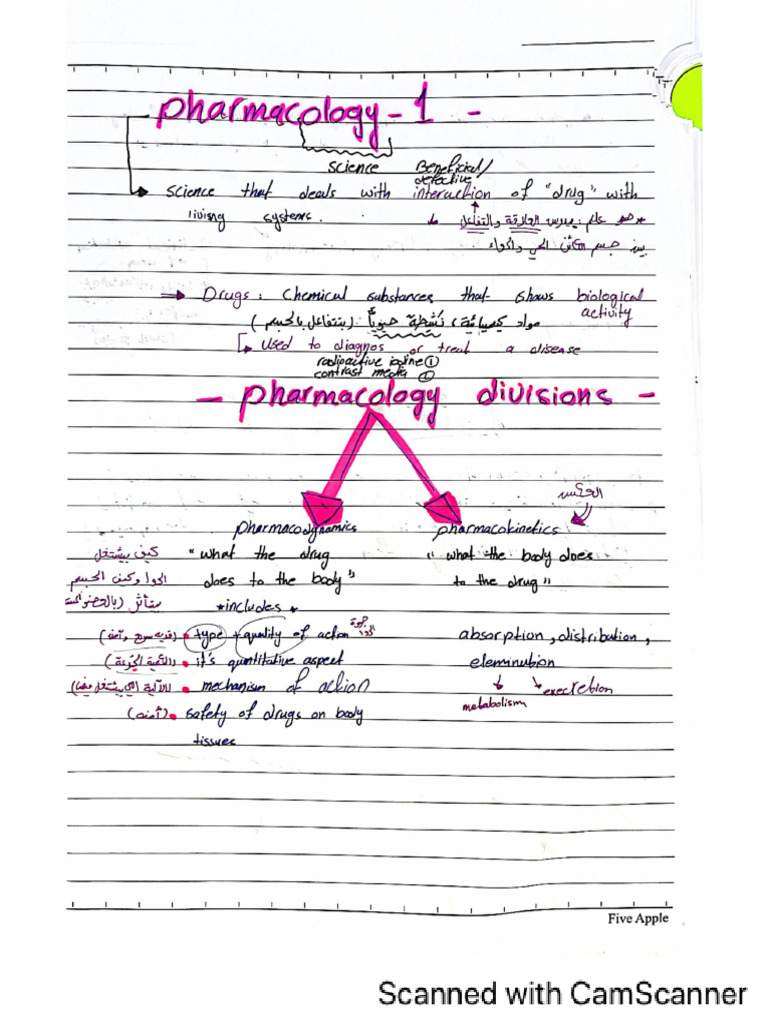 pharmacology - 1 -
science Beneficial/
defective
science that deals with interaction of "drug" with
living systems.
* هو علم: يدرس العلاقة والتفاعل
بين جسم الكائن الحي والدواء
Drugs: chemical substances that shows biological
activity
مواد كيميائية، نَشِطة حيوياً. (بتتفاعل بالجسم)
used to diagnos or treat a disease
radioactive iodine ①
contrast media ②
- pharmacology divisions -
العكس
pharmacodynamics pharmacokinetics
كيف بيشتغل "what the drug "what the body does
الدوا وكيف الجسم does to the body" to the drug"
بتأثر
*includes *
• type + quality of action absorption, distribution,
(الكمية / الجرعة) • it's quantitative aspect elemination
• mechanism of action metabolism execretion
(آمنة) • safety of drugs on body
tissues
Five Apple
Scanned with CamScanner